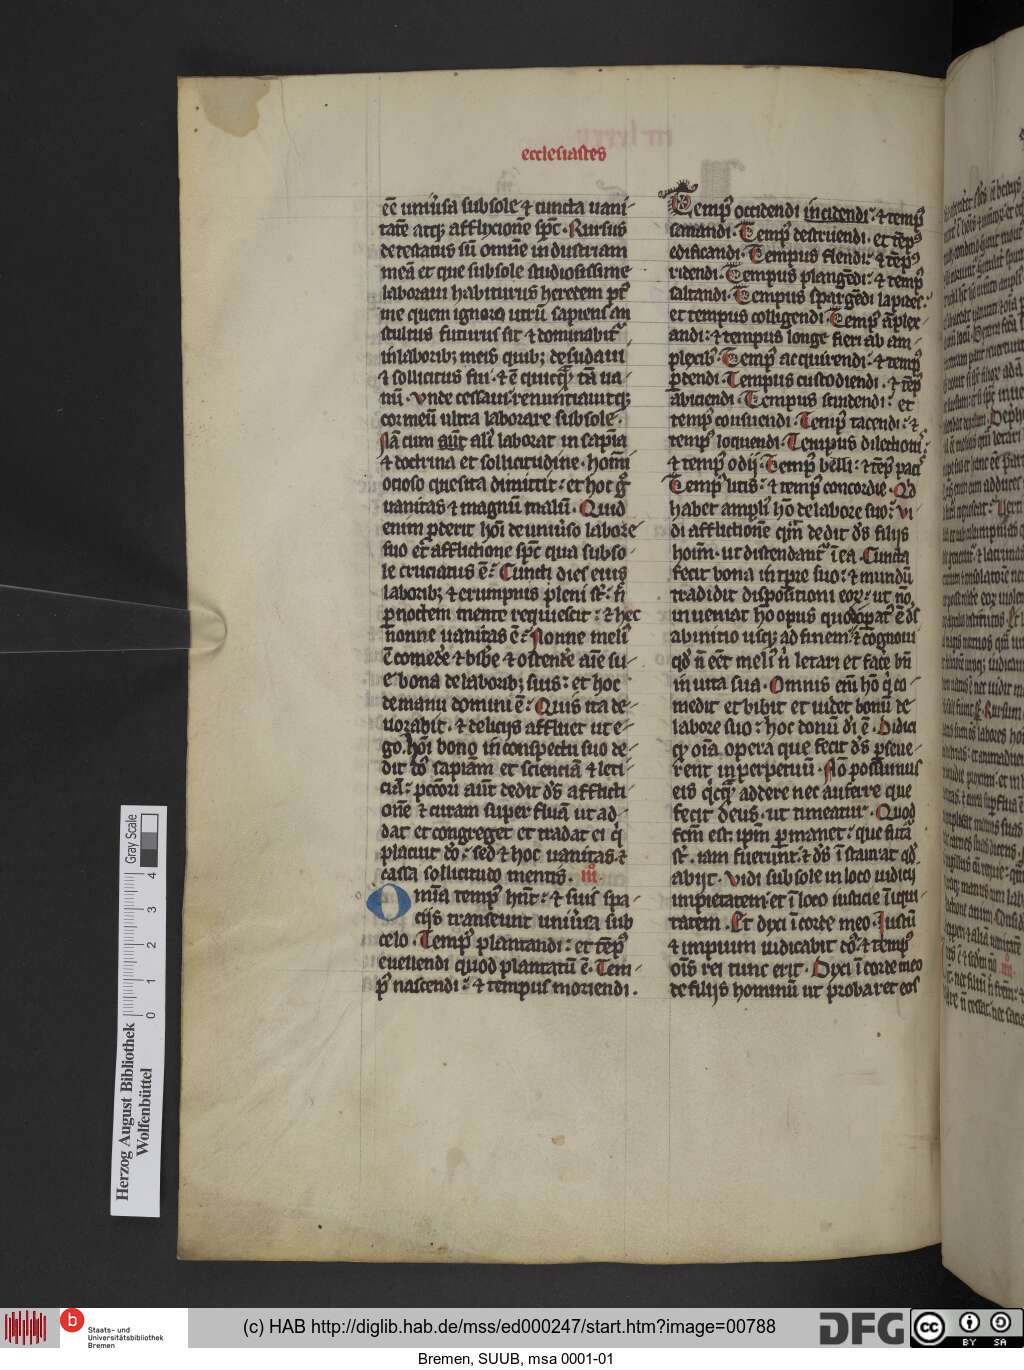 ecclesiastes
eē uniũsa sub sole ⁊ cuncta uani-
tatē atq; afflixcione sp̄c. Rursus
detestatus sū omnē industriam
meā et que sub sole studiosissime
laboraui habiturus heredem pt᷒
me quem ignoro utrū sapiens an
stultus futurus sit ⁊ dominabit᷒
in laborib; meis quib; desudaui
⁊ sollicitus fui. ⁊ ē quicq̄ tā ua-
nū. Vnde cessaui. renuntiauitq;
cor meū ultra laborare sub sole.
Nā cum aūt ali᷒ laborat in sapīa
⁊ doctrina et sollicitudine. homīi
ocioso quesita dimittit: et hoc g̊
uanitas ⁊ magnū malū. Quid
enim pderit hōi de uniũso labore
suo et afflictione sp̄c qua sub so-
le cruciatus ē: Cuncti dies eius
laborib; ⁊ erumpnis pleni st̄: n̄
p noctem mente requiescit: ⁊ hec
nonne uanitas ē: Nonne meli᷒
ē comede ⁊ bibe ⁊ ostende aīe su-
e bona de laborib; suis: et hoc
de manu domini ē: Quis ita de-
uorabit. ⁊ delicijs affluet ut e-
go. hōi bono in conspectu suo de-
dit ds̄ sapiām et scienciā ⁊ leti-
ciā: pccōri aūt dedit ds̄ afflicti-
onē ⁊ curam superfluā ut ad-
dat et congreget et tradat ei q̇
placuit dō: sed ⁊ hoc uanitas ⁊
cassa sollicitudo mentis. iii.
Omīa temp᷒ hn̄t: ⁊ suis spa-
cijs transeunt uniũsa sub
celo. Temp᷒ plantandi: et tēp᷒
euellendi quod plantatū ē. Tem-
p᷒ nascendi: ⁊ tempus moriendi.
Temp᷒ occidendi incidendi: ⁊ temp᷒
sanandi. Temp᷒ destruendi. et tēp᷒
edificandi. Tempus flendi: ⁊ tēp᷒
ridendi. Tempus plangēdi: ⁊ temp᷒
saltandi. Tempus spargēdi lapides:
et tempus colligendi. Temp᷒ āplex-
andi: ⁊ tempus longe fieri ab am-
plexib᷒. Temp᷒ acquirendi: ⁊ temp᷒
pdendi. Tempus custodiendi. ⁊ tēp᷒
abiciendi. Tempus scindendi: et
temp᷒ consuendi: Temp᷒ tacendi: ⁊
temp᷒ loquendi. Tempus dilectionis:
⁊ temp᷒ odij. Temp᷒ belli: ⁊ tēp᷒ paci᷒
Temp᷒ litis: ⁊ temp᷒ concordie. Qd
habet ampli᷒ hō de labore suo: vi-
di afflictionē quā dedit ds̄ filijs
hoīm. ut distendant᷒ ī ea. Cuncta
fecit bona in tpre suo: ⁊ mundū
tradidit dispositioni eor: ut nō
inueniat hō opus quod opat᷒ ē ds̄
ab initio usq; ad finem. ⁊ cognoui
qd n̄ eēt meli᷒ n̄ letari et face bn̄
in uita sua. Omnis em̄ hō q̇ co-
medit et bibit et uidet bonū de
labore suo: hoc donū dī ē. Didici
q oīa opera que fecit ds̄ pseue-
rent in perpetuū. Nō possumus
eis q̇cq̄ addere nec auferre que
fecit deus. ut timeatur. Quod
fcm̄ est. ipm̄ pmanet: que futā
st̄. iam fuerunt. ⁊ ds̄ ī staurat qd
abijt. Vidi sub sole in loco iudicij
impietatem. et ī loco iusticie īiqui-
tatem. Et dixi ī corde meo. Iustū
⁊ impium iudicabit ds̄. ⁊ temp᷒
oīs rei tunc erit. Dixi ī corde meo
de filijs hominū ut probaret eos
Herzog August Bibliothek
Wolfenbüttel
Gray Scale
0 1 2 3 4
b Staats- und
Universitätsbibliothek
Bremen
(c) HAB http://diglib.hab.de/mss/ed000247/start.htm?image=00788
DFG
cc BY SA
Bremen, SUUB, msa 0001-01